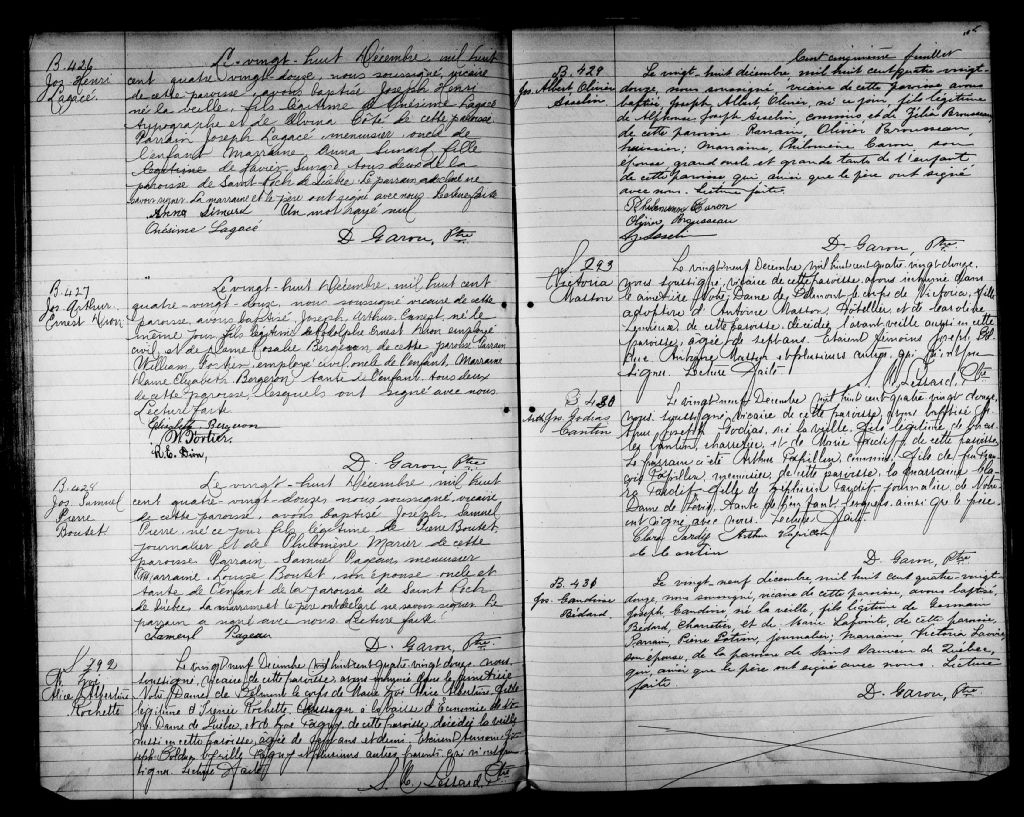 B. 426
Jos. Henri
Lagacé.
Le vingt-huit Décembre, mil huit
cent quatre vingt-douze, nous soussigné, vicaire
de cette paroisse, avons baptisé Joseph Henri
né la veille, fils légitime d'Onésime Lagacé
typographe et de Alvina Côté de cette paroisse.
Parrain Joseph Lagacé, menuisier, oncle de
l'enfant Marraine Anna Simard fille
légitime de Xavier Simard tous deux de la
paroisse de Saint-Roch de Québec. Le parrain a déclaré ne
savoir signer. La marraine et le père ont signé avec nous. Lecture faite
Anna Simard Un mot rayé nul
Onésime Lagacé
D. Garon, Ptre
B. 427
Jos. Arthur
Ernest Dion.
Le vingt-huit Décembre, mil huit cent
quatre-vingt-douze, nous soussigné vicaire de cette
paroisse, avons baptisé Joseph, Arthur, Ernest, né le
même jour, fils légitime de Rodolphe Ernest Dion employé
civil, et de Dame Rosalie Bergeron de cette paroisse Parrain
William Fortier, employé civil, oncle de l'enfant, Marraine
Dame Elizabeth Bergeron tante de l'enfant, tous deux
de cette paroisse, lesquels ont signé avec nous.
Lecture faite
Elizabeth Bergeron
W. Fortier.
R. E. Dion,
D. Garon, Ptre
B. 428
Jos. Samuel
Pierre
Boutet.
Le vingt-huit Décembre, mil huit
cent quatre-vingt-douze nous soussigné, vicaire
de cette paroisse, avons baptisé Joseph, Samuel
Pierre, né ce jour fils légitime de Pierre Boutet,
journalier et de Philomène Marier de cette
paroisse Parrain - Samuel Pageau menuisier
Marraine, Louise Boutet, son épouse oncle et
tante de l'enfant de la paroisse de Saint Roch
de Québec. La marraine et le père ont déclaré ne savoir signer Le
parrain a signé avec nous. Lecture faite
Samuel Pageau
D. Garon, Ptre
S. 292
M. Zoé
Alice Albertine
Rochette
Le vingt neuf Décembre mil huit cent quatre vingt douze, nous
soussigné, vicaire de cette paroisse, avons inhumé dans le cimetière
Notre Dame de Belmont le corps de Marie Zoé Alice Albertine, fille
légitime d'Irénée Rochette, Messager à la Caisse d'Economie de
N. Dame de Québec, et de Zoé Paquet, de cette paroisse, décédée la veille
aussi en cette paroisse, agée de ans et demi. Etaient témoins
et plusieurs autres parents qui n'ont pu
signer. Lecture faite
Lessard, Ptre
Cent cinquième feuillet
B. 429
Jos. Albert Olivier
Asselin
Le vingt-huit décembre, mil huit cent quatre-vingt-
douze, nous soussigné, vicaire de cette paroisse avons
baptisé, Joseph, Albert, Olivier, né ce jour, fils légitime
de Alphonse Joseph Asselin, commis, et de Zélia Brousseau,
de cette paroisse Parrain, Olivier Brousseau,
huissier; Marraine, Philomène Caron, son
épouse, grand oncle et grande tante de l'enfant,
de cette paroisse qui, ainsi que le père ont signé
avec nous. Lecture faite.
Philomène Caron
Olivier Brousseau
Asselin
D. Garon, Ptre
S. 293
Victoria
Masson
Le vingt neuf Décembre mil huit cent quatre vingt douze,
nous soussigné, vicaire de cette paroisse, avons inhumé dans
le cimetière Notre Dame de Belmont le corps de Victoria, fille
adoptive d'Antoine Masson Hôtellier, et de Caroline
Lemieux, de cette paroisse, décédée l'avant veille aussi en cette
paroisse, agée de sept ans. Etaient témoins Joseph
Antoine Masson et plusieurs autres qui n'ont pu
signer. Lecture faite
Lessard, Ptre
B. 430
Arth. Jos. Godias
Cantin
Le vingt neuf Décembre mil huit cent quatre vingt douze,
nous soussigné, vicaire de cette paroisse, avons baptisé
Joseph Godias, né la veille, fils légitime de
Cantin, charretier, et de Marie Tardif, de cette paroisse.
Le parrain a été Arthur Papillon, commis, fils de
Papillon, menuisier de cette paroisse, la marraine
Tardif, fille de Zéphirin Tardif, journalier, de Notre
Dame de Lévis, tante de l'enfant, lesquels ainsi que le père
ont signé avec nous. Lecture faite.
Clara Tardif Arthur Papillon
Cantin
D. Garon, Ptre
B. 431
Jos. Gaudiose
Bédard.
Le vingt-neuf décembre, mil huit cent quatre-vingt-
douze, nous soussigné, vicaire de cette paroisse, avons baptisé,
Joseph Gaudiose, né la veille, fils légitime de Germain
Bédard, Charretier, et de Marie Lapointe, de cette paroisse,
Parrain, Pierre Potvin, journalier; Marraine, Victoria
son épouse, de la paroisse de Saint Sauveur de Québec,
qui, ainsi que le père ont signé avec nous. Lecture
faite
D. Garon, Ptre